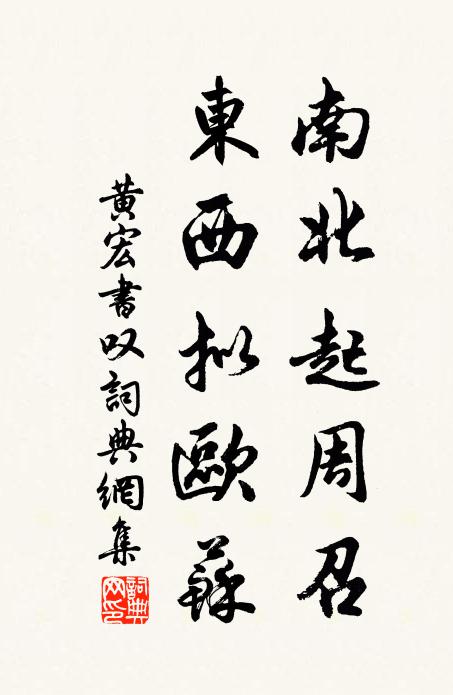 南北起周召
東西拟歐蘇
黃宏書叹詞典網集
詞典网印